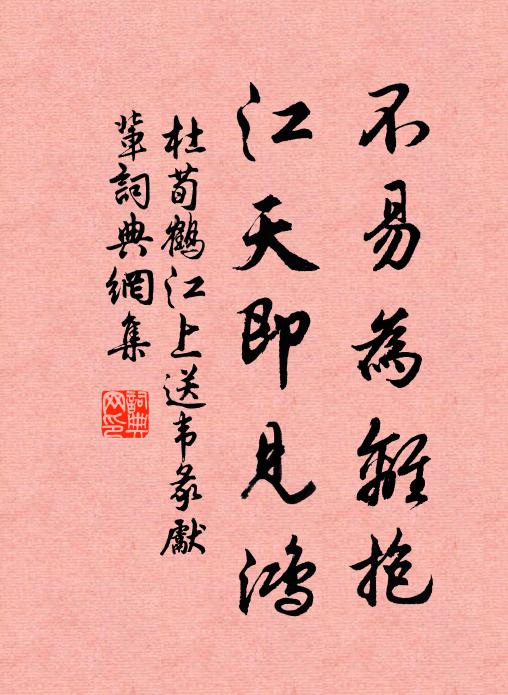 不易為離抱
江天即見鴻
杜荀鶴江上送韦彖獻
輩詞典網集
詞典网印